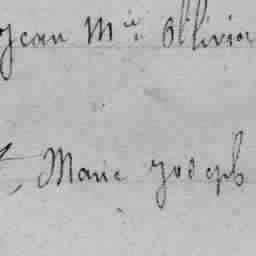 Jean M.ie Ollivier
Marie Joseph